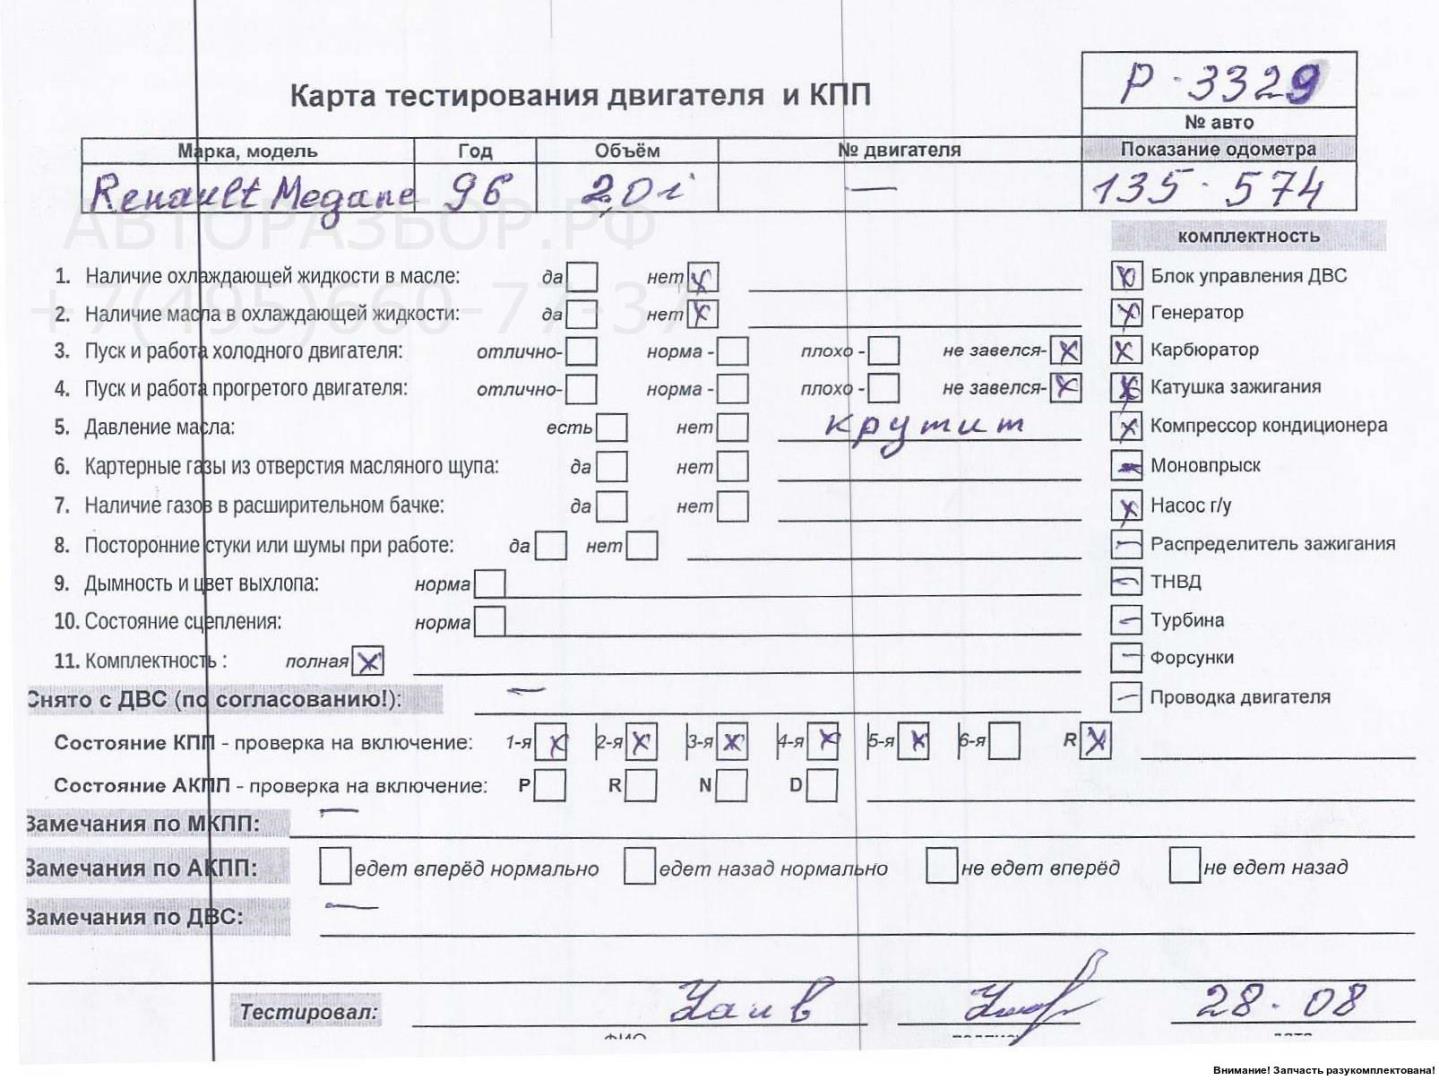 Р-3329
Карта тестирования двигателя и КПП
№ авто
Марка, модель Год Объём № двигателя Показание одометра
Renault Megane 96 2,0i — 135-574
АВТОРАЗБОР.РФ
комплектность
1. Наличие охлаждающей жидкости в масле: да нет Блок управления ДВС
+7(495)660-77-37
2. Наличие масла в охлаждающей жидкости: да нет Генератор
3. Пуск и работа холодного двигателя: отлично- норма - плохо - не завелся- Карбюратор
4. Пуск и работа прогретого двигателя: отлично- норма - плохо - не завелся- Катушка зажигания
5. Давление масла: есть нет крутит Компрессор кондиционера
6. Картерные газы из отверстия масляного щупа: да нет Моновпрыск
7. Наличие газов в расширительном бачке: да нет Насос г/у
8. Посторонние стуки или шумы при работе: да нет Распределитель зажигания
9. Дымность и цвет выхлопа: норма ТНВД
10. Состояние сцепления: норма Турбина
11. Комплектность : полная Форсунки
Снято с ДВС (по согласованию!): — Проводка двигателя
Состояние КПП - проверка на включение: 1-я 2-я 3-я 4-я 5-я 6-я R
Состояние АКПП - проверка на включение: P R N D
Замечания по МКПП: —
Замечания по АКПП: едет вперёд нормально едет назад нормально не едет вперёд не едет назад
Замечания по ДВС: —
Тестировал: 28-08
ФИО подпись дата
Внимание! Запчасть разукомплектована!